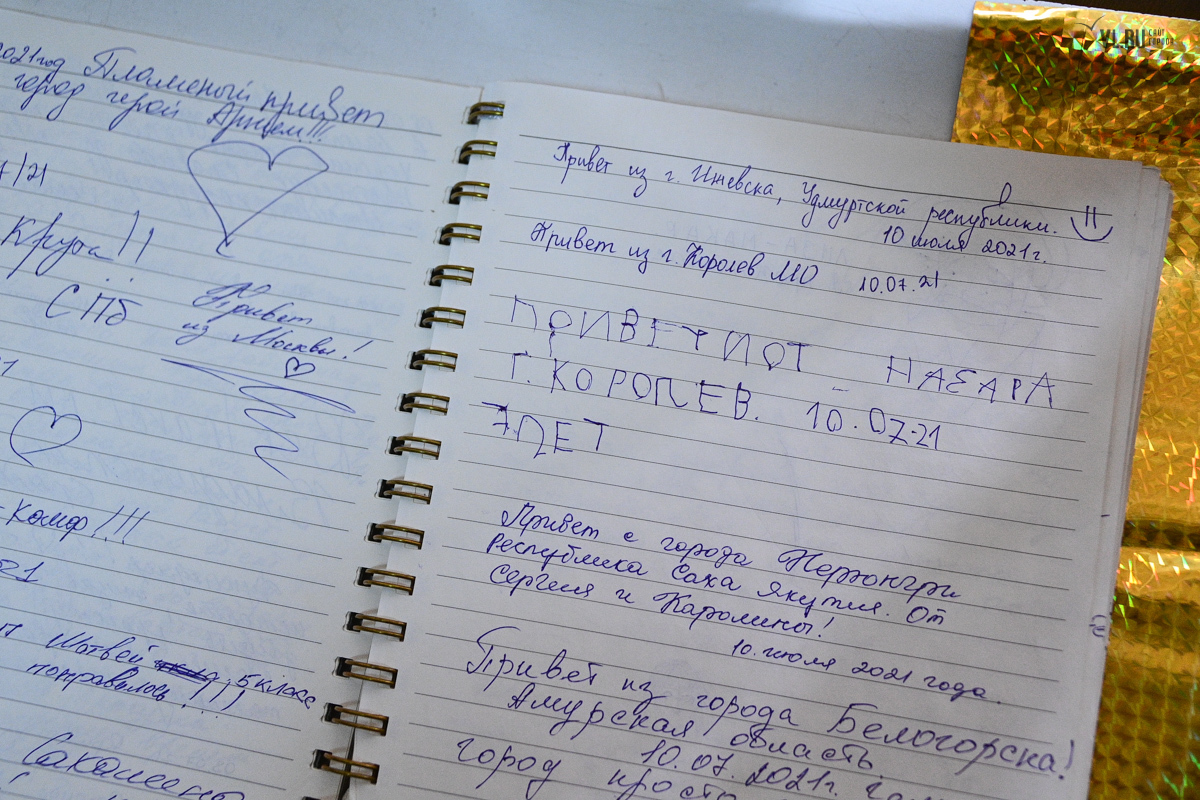 2021год Пламеный привет
город герой Артем!!!
7/21
Круга!!
СПб
Привет
из Москвы!
-комф!!!
Матвей 5 класс
понравилось!!!
Привет из г. Ижевска, Удмуртской республики.
10 июля 2021г.
Привет из г. Королев МО 10.07.21
ПРИВЕТ И ОТ НАЗАРА
Г. КОРОЛЕВ. 10.07.21
7 ЛЕТ
Привет с города Нерюнгри
Республика Саха Якутия. От
Сергея и Каролины!
10. июля 2021 года.
Привет из города Белогорска!
Амурская область.
10.07.2021г.
город просто
VL.RU САЙТ ГОРОДА